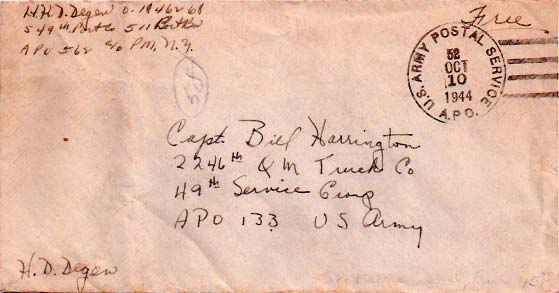 H.H.D. Degen O-1846268
549th Port Co 511 Port Bn
APO 562 c/o P.M. N.Y.
Free
U.S. ARMY POSTAL SERVICE
52
OCT
10
1944
A.P.O.
Capt. Bill Harrington
2246th Q M Truck Co
49th Service Group
APO 133 US Army
H. D. Degen